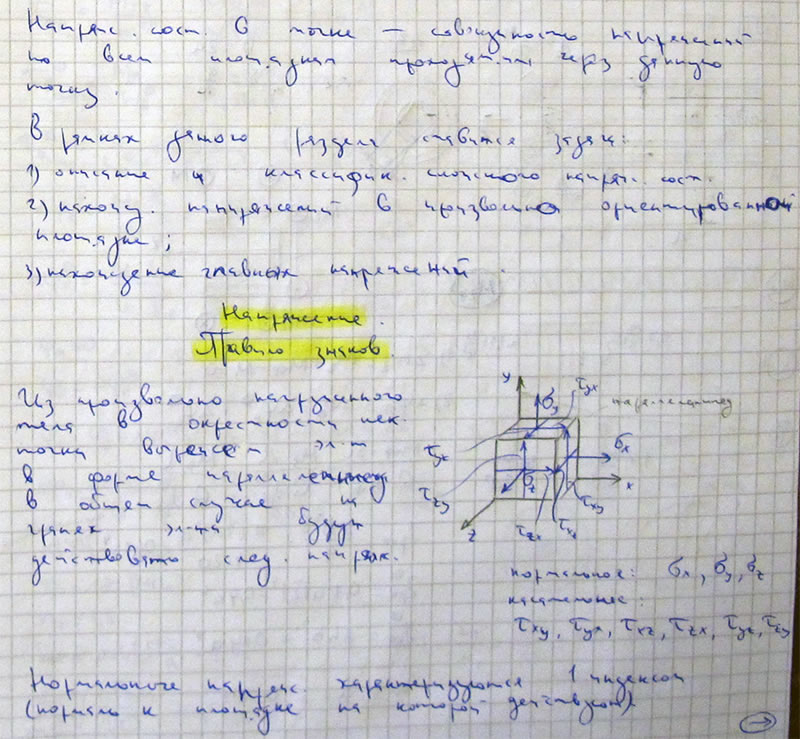 Напряж. сост. в точке — совокупность напряжений
по всем площадкам проходящим через данную
точку.
В рамках данного раздела ставится задачи:
1) описание и классифик. сложного напряж. сост.
2) нахожд. напряжений в произвольно ориентированной
площадке;
3) нахождение главных напряжений.
Напряжение.
Правило знаков.
Из произвольно нагруженного
тела в окрестности нек.
точки вырежем эл-т
в форме параллелепипед
в общем случае на
гранях эл-та будут
действовать след. напряж.
y τyx
σy параллелепипед
τyz σx
τzy σz x
z τzx τxz τxy
нормальное: σx, σy, σz
касательные:
τxy, τyx, τxz, τzx, τyz, τzy
Нормальные напряж. характеризуются 1 индексом
(нормаль к площадке на которой действуют)
→